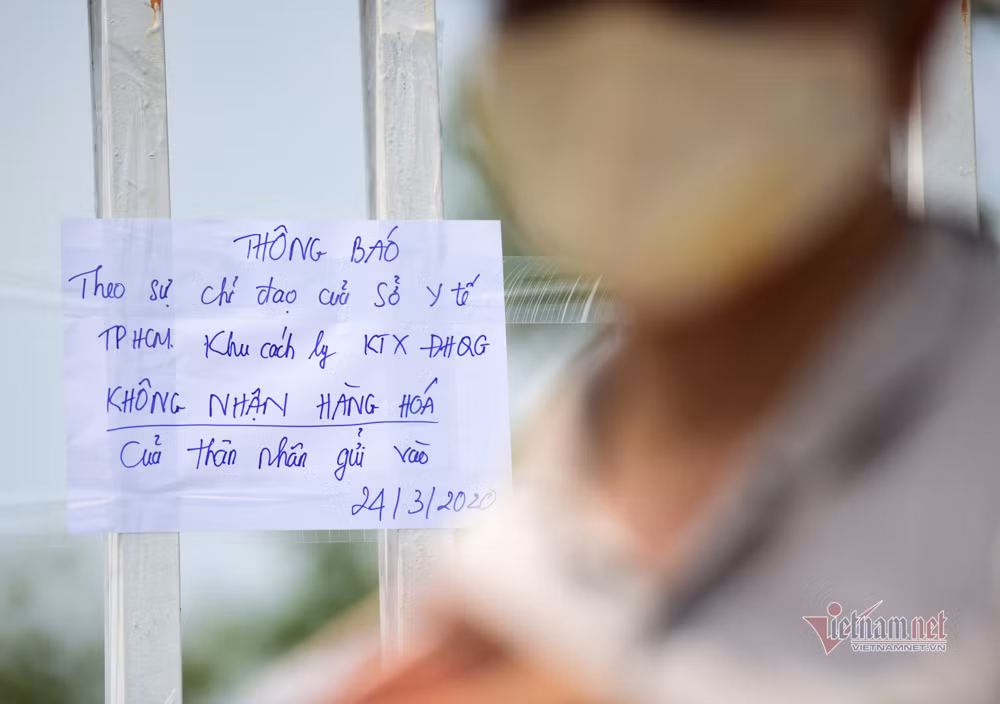 THÔNG BÁO
Theo sự chỉ đạo của Sở y tế
TPHCM. Khu cách ly KTX ĐHQG
KHÔNG NHẬN HÀNG HÓA
Của thân nhân gửi vào
24/3/2020
Vietnamnet
VIETNAMNET.VN